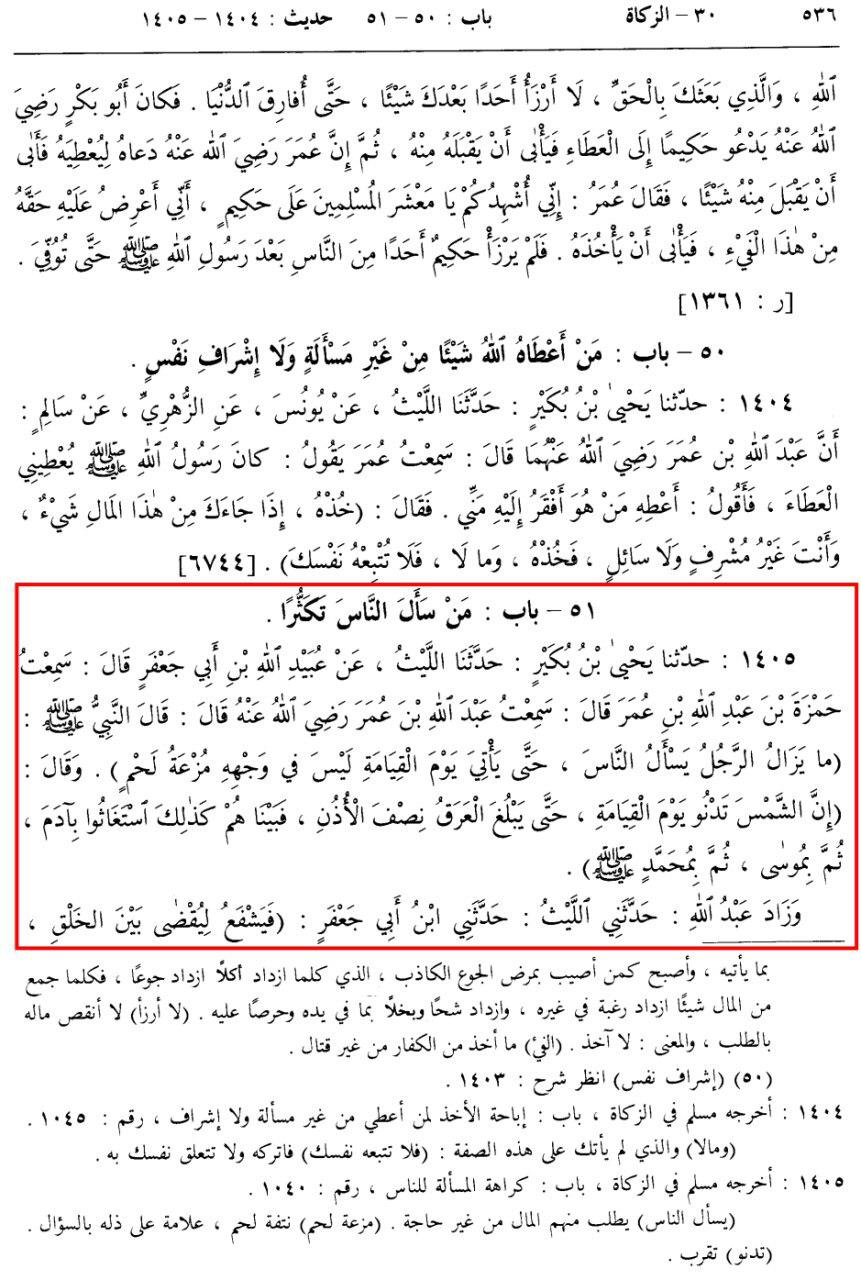 ٥٣٦ ٣٠ – الزكاة باب : ٥٠ – ٥١ حديث : ١٤٠٤ – ١٤٠٥
ٱللهِ ، وَالَّذِي بَعَثَكَ بِالْحَقِّ ، لَا أَرْزَأُ أَحَدًا بَعْدَكَ شَيْئًا ، حَتَّى أُفارِقَ ٱلدُّنْيَا . فَكانَ أَبُو بَكْرٍ رَضِيَ
ٱللهُ عَنْهُ يَدْعُو حَكِيمًا إِلَى الْعَطَاءِ فَيَأْبَى أَنْ يَقْبَلَهُ مِنْهُ ، ثُمَّ إِنَّ عُمَرَ رَضِيَ ٱلله عَنْهُ دَعاهُ لِيُعْطِيَهُ فَأَبَى
أَنْ يَقْبَلَ مِنْهُ شَيْئًا ، فَقَالَ عُمَرُ : إِنِّي أُشْهِدُكُمْ يَا مَعْشَرَ الْمُسْلِمِينَ عَلَى حَكِيمٍ ، أَنِّي أَعْرِضُ عَلَيْهِ حَقَّهُ
مِنْ هٰذَا الْفَيْءِ ، فَيَأْبَى أَنْ يَأْخُذَهُ . فَلَمْ يَرْزَأْ حَكِيمٌ أَحَدًا مِنَ النَّاسِ بَعْدَ رَسُولِ ٱللهِ ﷺ حَتَّى تُوُفِّيَ .
[ر : ١٣٦١]
٥٠ – باب : مَنْ أَعْطَاهُ ٱللهُ شَيْئًا مِنْ غَيْرِ مَسْأَلَةٍ وَلَا إِشْرَافِ نَفْسٍ .
١٤٠٤ : حدّثنا يَحْيىٰ بْنُ بُكَيْرٍ : حَدَّثَنَا اللَّيْثُ ، عَنْ يُونُسَ ، عَنِ الزُّهْرِيِّ ، عَنْ سَالِمٍ :
أَنَّ عَبْدَ ٱللهِ بْن عُمَرَ رَضِيَ ٱللهُ عَنْهُمَا قَالَ : سَمِعْتُ عُمَرَ يَقُولُ : كانَ رَسُولُ ٱللهِ ﷺ يُعْطِينِي
الْعَطَاءَ ، فَأَقُولُ : أَعْطِهِ مَنْ هُوَ أَفْقَرُ إِلَيْهِ مِنِّي . فَقَالَ : (خُذْهُ ، إِذَا جاءَكَ مِنْ هٰذَا المَالِ شَيْءٌ ،
وَأَنْتَ غَيْرُ مُشْرِفٍ وَلَا سَائِلٍ ، فَخُذْهُ ، وَما لَا ، فَلَا تُتْبِعْهُ نَفْسَكَ) . [٦٧٤٤]
٥١ – باب : مَنْ سَأَلَ النَّاسَ تَكَثُّرًا .
١٤٠٥ : حدّثنا يَحْيىٰ بْنُ بُكَيْرٍ : حَدَّثَنَا اللَّيْثُ ، عَنْ عُبَيْدِ ٱللهِ بْنِ أَبِي جَعْفَرٍ قَالَ : سَمِعْتُ
حَمْزَةَ بْنَ عَبْدِ ٱللهِ بْنِ عُمَرَ قَالَ : سَمِعْتُ عَبْدَ ٱللهِ بْنَ عُمَرَ رَضِيَ ٱللهُ عَنْهُ قَالَ : قَالَ النَّبِيُّ ﷺ :
(ما يَزَالُ الرَّجُلُ يَسْأَلُ النَّاسَ ، حَتَّى يَأْتِيَ يَوْمَ الْقِيَامَةِ لَيْسَ في وَجْهِهِ مُزْعَةُ لَحْمٍ) . وَقَالَ :
(إِنَّ الشَّمْسَ تَدْنُو يَوْمَ الْقِيَامَةِ ، حَتَّى يَبْلُغَ الْعَرَقُ نِصْفَ الْأُذُنِ ، فَبَيْنَا هُمْ كَذٰلِكَ ٱسْتَغَاثُوا بِآدَمَ ،
ثُمَّ بِمُوسٰى ، ثُمَّ بِمُحَمَّدٍ ﷺ) .
وَزَادَ عَبْدُ ٱللهِ : حَدَّثَنِي ٱللَّيْثُ : حَدَّثَنِي ابْنُ أَبِي جَعْفَرٍ : (فَيَشْفَعُ لِيُقْضٰى بَيْنَ الخَلْقِ ،
بما يأتيه ، وأصبح كمن أصيب بمرض الجوع الكاذب ، الذي كلما ازداد أكلًا ازداد جوعًا ، فكلما جمع
من المال شيئًا ازداد رغبة في غيره ، وازداد شحًا وبخلًا بما في يده وحرصًا عليه . (لا أرزأ) لا أنقص ماله
بالطلب ، والمعنى : لا آخذ . (الفيْ) ما أخذ من الكفار من غير قتال .
(٥٠) (إشراف نفس) انظر شرح : ١٤٠٣ .
١٤٠٤ : أخرجه مسلم في الزكاة ، باب : إباحة الأخذ لمن أعطي من غير مسألة ولا إشراف ، رقم : ١٠٤٥ .
(ومالا) والذي لم يأتك على هذه الصفة : (فلا تتبعه نفسك) فاتركه ولا تتعلق نفسك به .
١٤٠٥ : أخرجه مسلم في الزكاة ، باب : كراهة المسألة للناس ، رقم : ١٠٤٠ .
(يسأل الناس) يطلب منهم المال من غير حاجة . (مزعة لحم) نتفة لحم ، علامة على ذله بالسؤال .
(تدنو) تقرب .